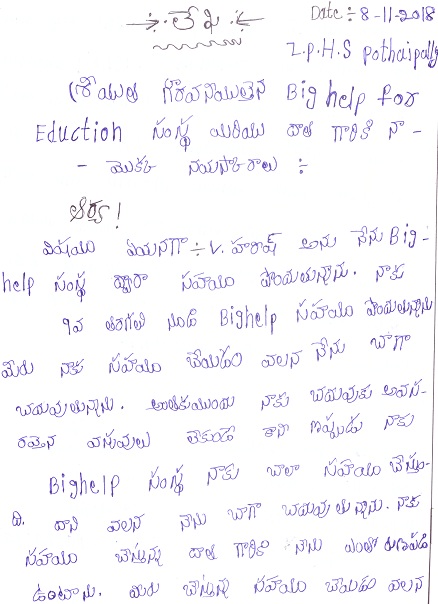 లేఖ
Date ÷ 8-11-2018
Z.P.H.S pothaipally
శ్రీయుత గౌరవనీయులైన Big help for
Eduction సంస్థ మరియు దాత గారికి నా -
- మొక్క నమస్కారాలు ÷
ఆర్య!
విషయం ఏమనగా ÷ V. హరీష్ అను నేను Big-
help సంస్థ ద్వారా సహాయం పొందుతున్నాను. నాకు
9వ తరగతి నుండి Bighelp సహాయం పొందుతున్నాను
మీరు నాకు సహాయం చేయడం వలన నేను బాగా
చదువుతున్నాను. అంతకుముందు నాకు చదువుకు అవస-
రమైన వస్తువులు లేకుండె కాని ఇప్పుడు నాకు
Bighelp సంస్థ నాకు చాలా సహాయం చేస్తుం-
ది. దాని వలన నేను బాగా చదువుతున్నాను. నాకు
సహాయం చేస్తున్న దాత గారికి నేను ఎంతో రుణపడి
ఉంటాను. మీరు చేస్తున్న సహాయం చేయడం వలన